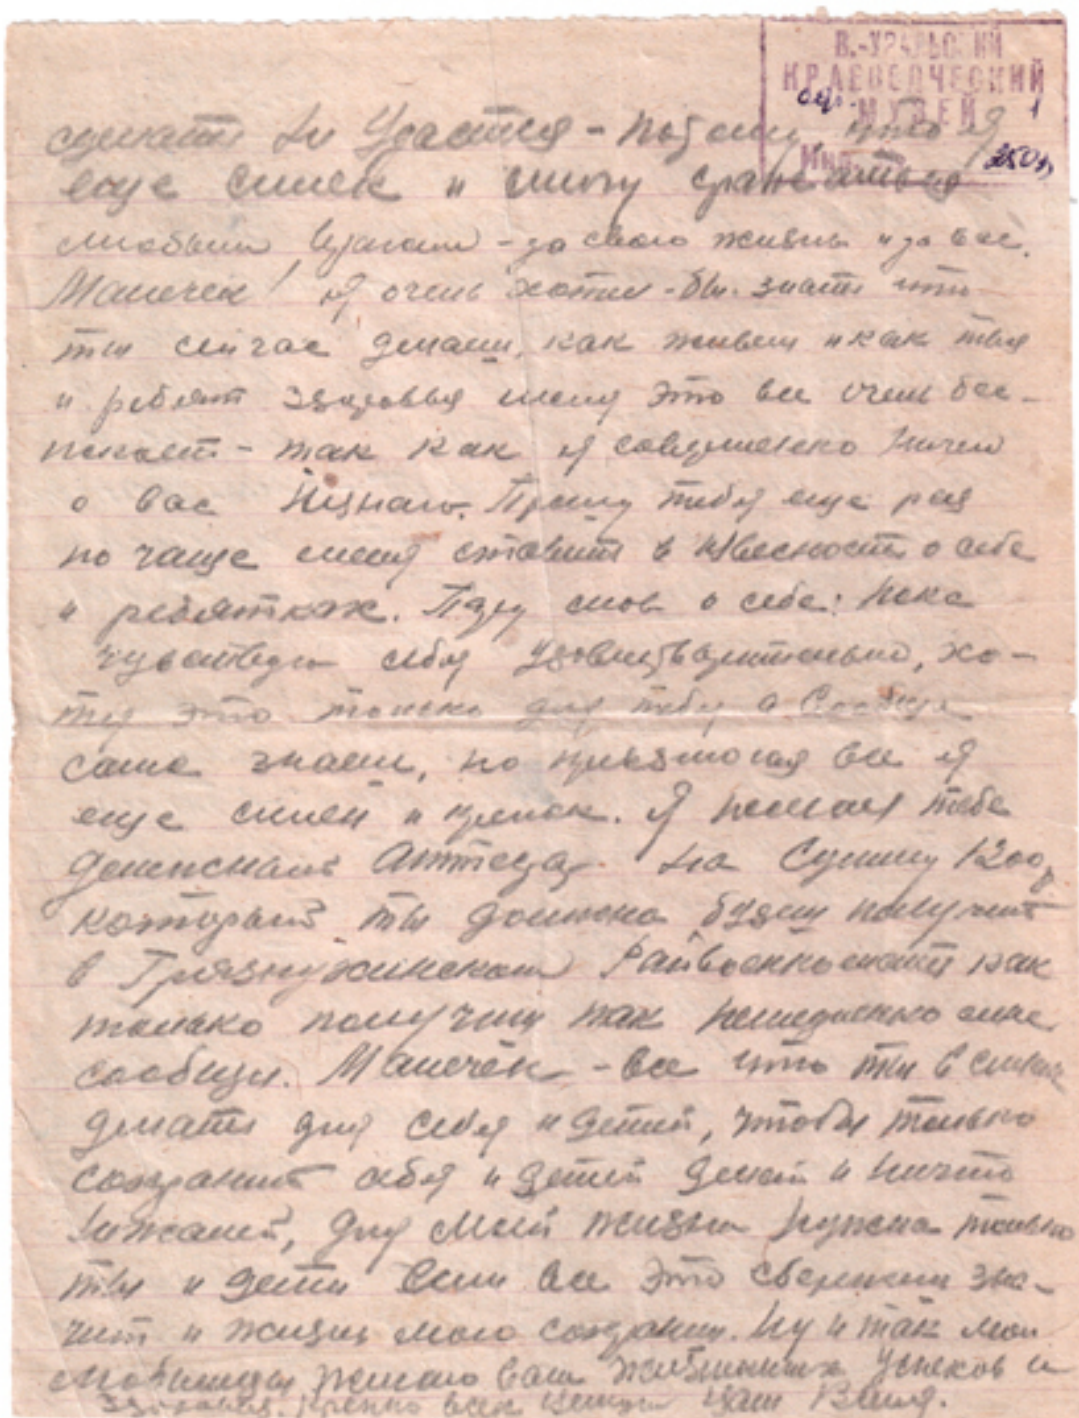 В.-УРАЛЬСКИЙ
КРАЕВЕДЧЕСКИЙ
МУЗЕЙ
1
Инв. № 250
Участия - потому что я
еще силек и смогу сражаться
любыми врагами - за свою жизнь и за вас.
Манечек! Я очень хотел-бы знать что
ты сичас делаеш, как живеш и как твоя
и ребят здоровья меня это все очень бес-
покоет - так как я совершенно ничего
о вас незнаю. Прошу тебя еще раз
по чаще меня ставит в извесность о себе
и ребятках. Пару слов о себе: пока
чувствую себя удовлетварительно, хо-
тя это только для тебя а вообще
сама знаеш, но превзмогая все я
еще силен и крепок. Я послал тебе
денежный Аттестат на Сумму 1200р
который ты должна будеш получит
в Грязнухинском Райвоенкомате как
только получиш так немедленно мне
сообщи. Манечек - все что ты в силах
делать для себя и детей, чтобы только
сохранит себя и детей делай и ничто
нижалей, для моей жизни нужна только
ты и дети если все это сбережеш зна-
чит и жизнь мою сохраниш. Ну и так мои
любимцы желаю вам жизненных успехов и
здоровья. Крепко всех целую ваш Ваня.